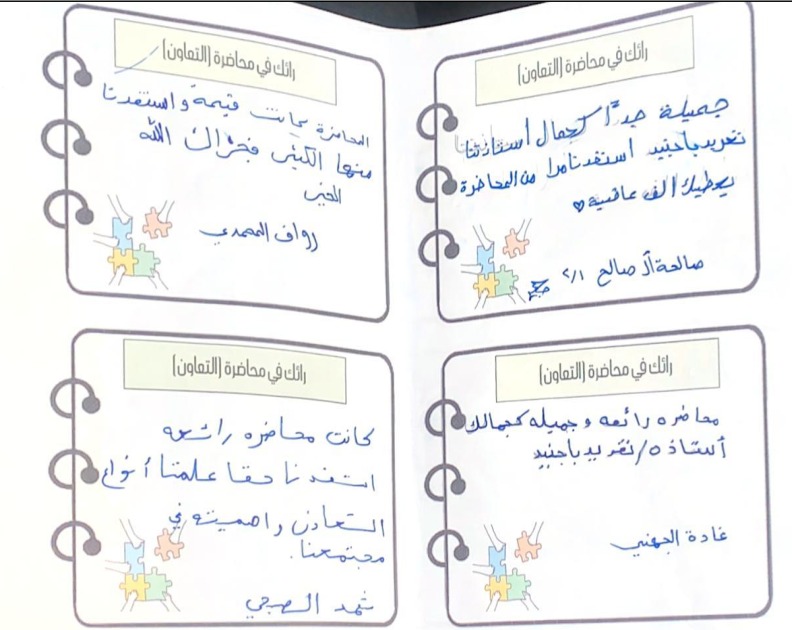 رائك في محاضرة (التعاون)
جميلة جدًا كجمال أستاذتنا
تغريد باجنيد استفدنا مرا من المحاضرة
يعطيك الف عافيه
صالحة آل صالح ٢/١
رائك في محاضرة (التعاون)
المحاضرة كانت قيمة واستفدنا
منها الكثير فجزاك الله
الخير
رواف المحمدي
رائك في محاضرة (التعاون)
محاضره رائعه وجميله كجمالك
أستاذه/تغريد باجنيد
غادة الجهني
رائك في محاضرة (التعاون)
كانت محاضره رائعه
استفدنا حقا علمتنا أنواع
التعاون واهميته في
مجتمعنا.